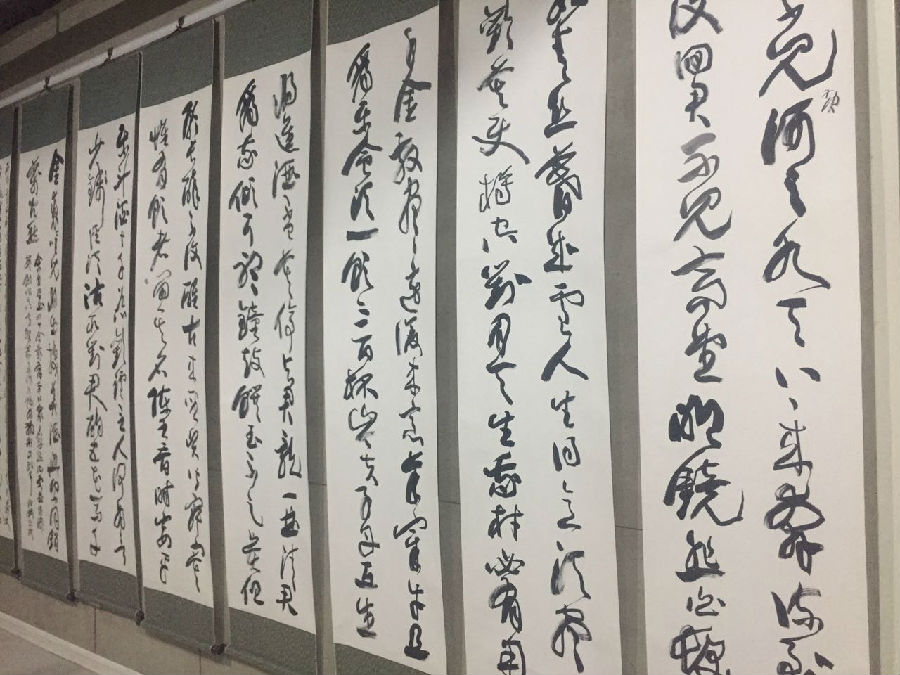 見河之水天上来奔流到
復回君不見高堂明鏡悲白髮
如青丝暮成雪人生得意須盡
歡莫使樽空對月天生我材必有用
千金散盡還復来烹羊宰牛且
為樂會須一飲三百杯岑夫子丹丘生
将進酒杯莫停與君歌一曲請君
為我傾耳聽鐘鼓饌玉不足貴但
願長醉不復醒古来聖賢皆寂寞
惟有飲者留其名陳王昔時宴平
樂斗酒十千恣歡謔主人何為言
少錢徑須沽取對君酌五花馬千
金裘呼兒将出換美酒與爾同銷
萬古愁